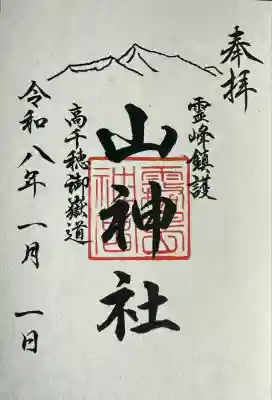 奉拝
霊峰鎮護
山神社
高千穂御嶽道
令和八年一月一日